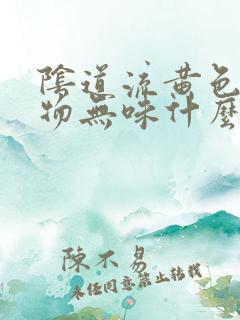 陰道流黃色
物無味什麼
陳不易
未經同意禁止轉載